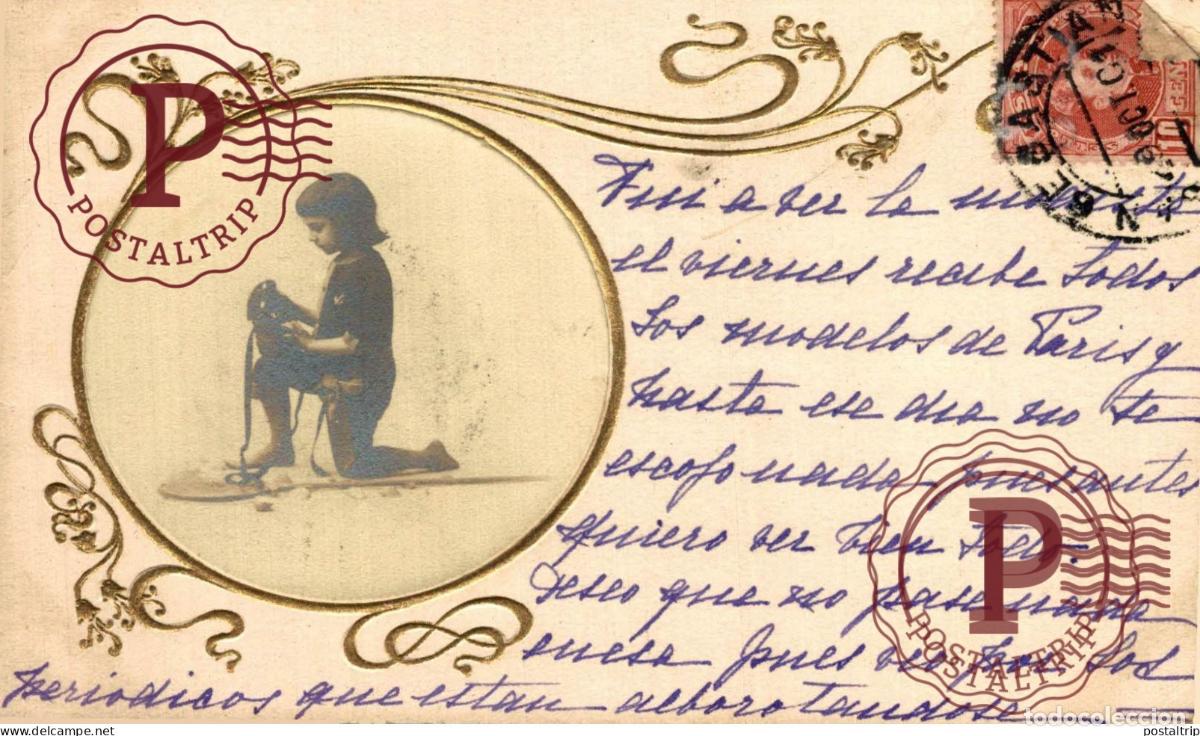 POSTALTRIP
10
CEN
N SEBASTIAN
OCT
Fui a ver la
el viernes recibe todos
los modelos de Paris y
hasta ese dia no te
escojo nada pues antes
quiero ver bien todo.
Deseo que no pase nada
pues veo por los
periodicos que estan alborotandose
POSTALTRIP
todocoleccion
postaltrip